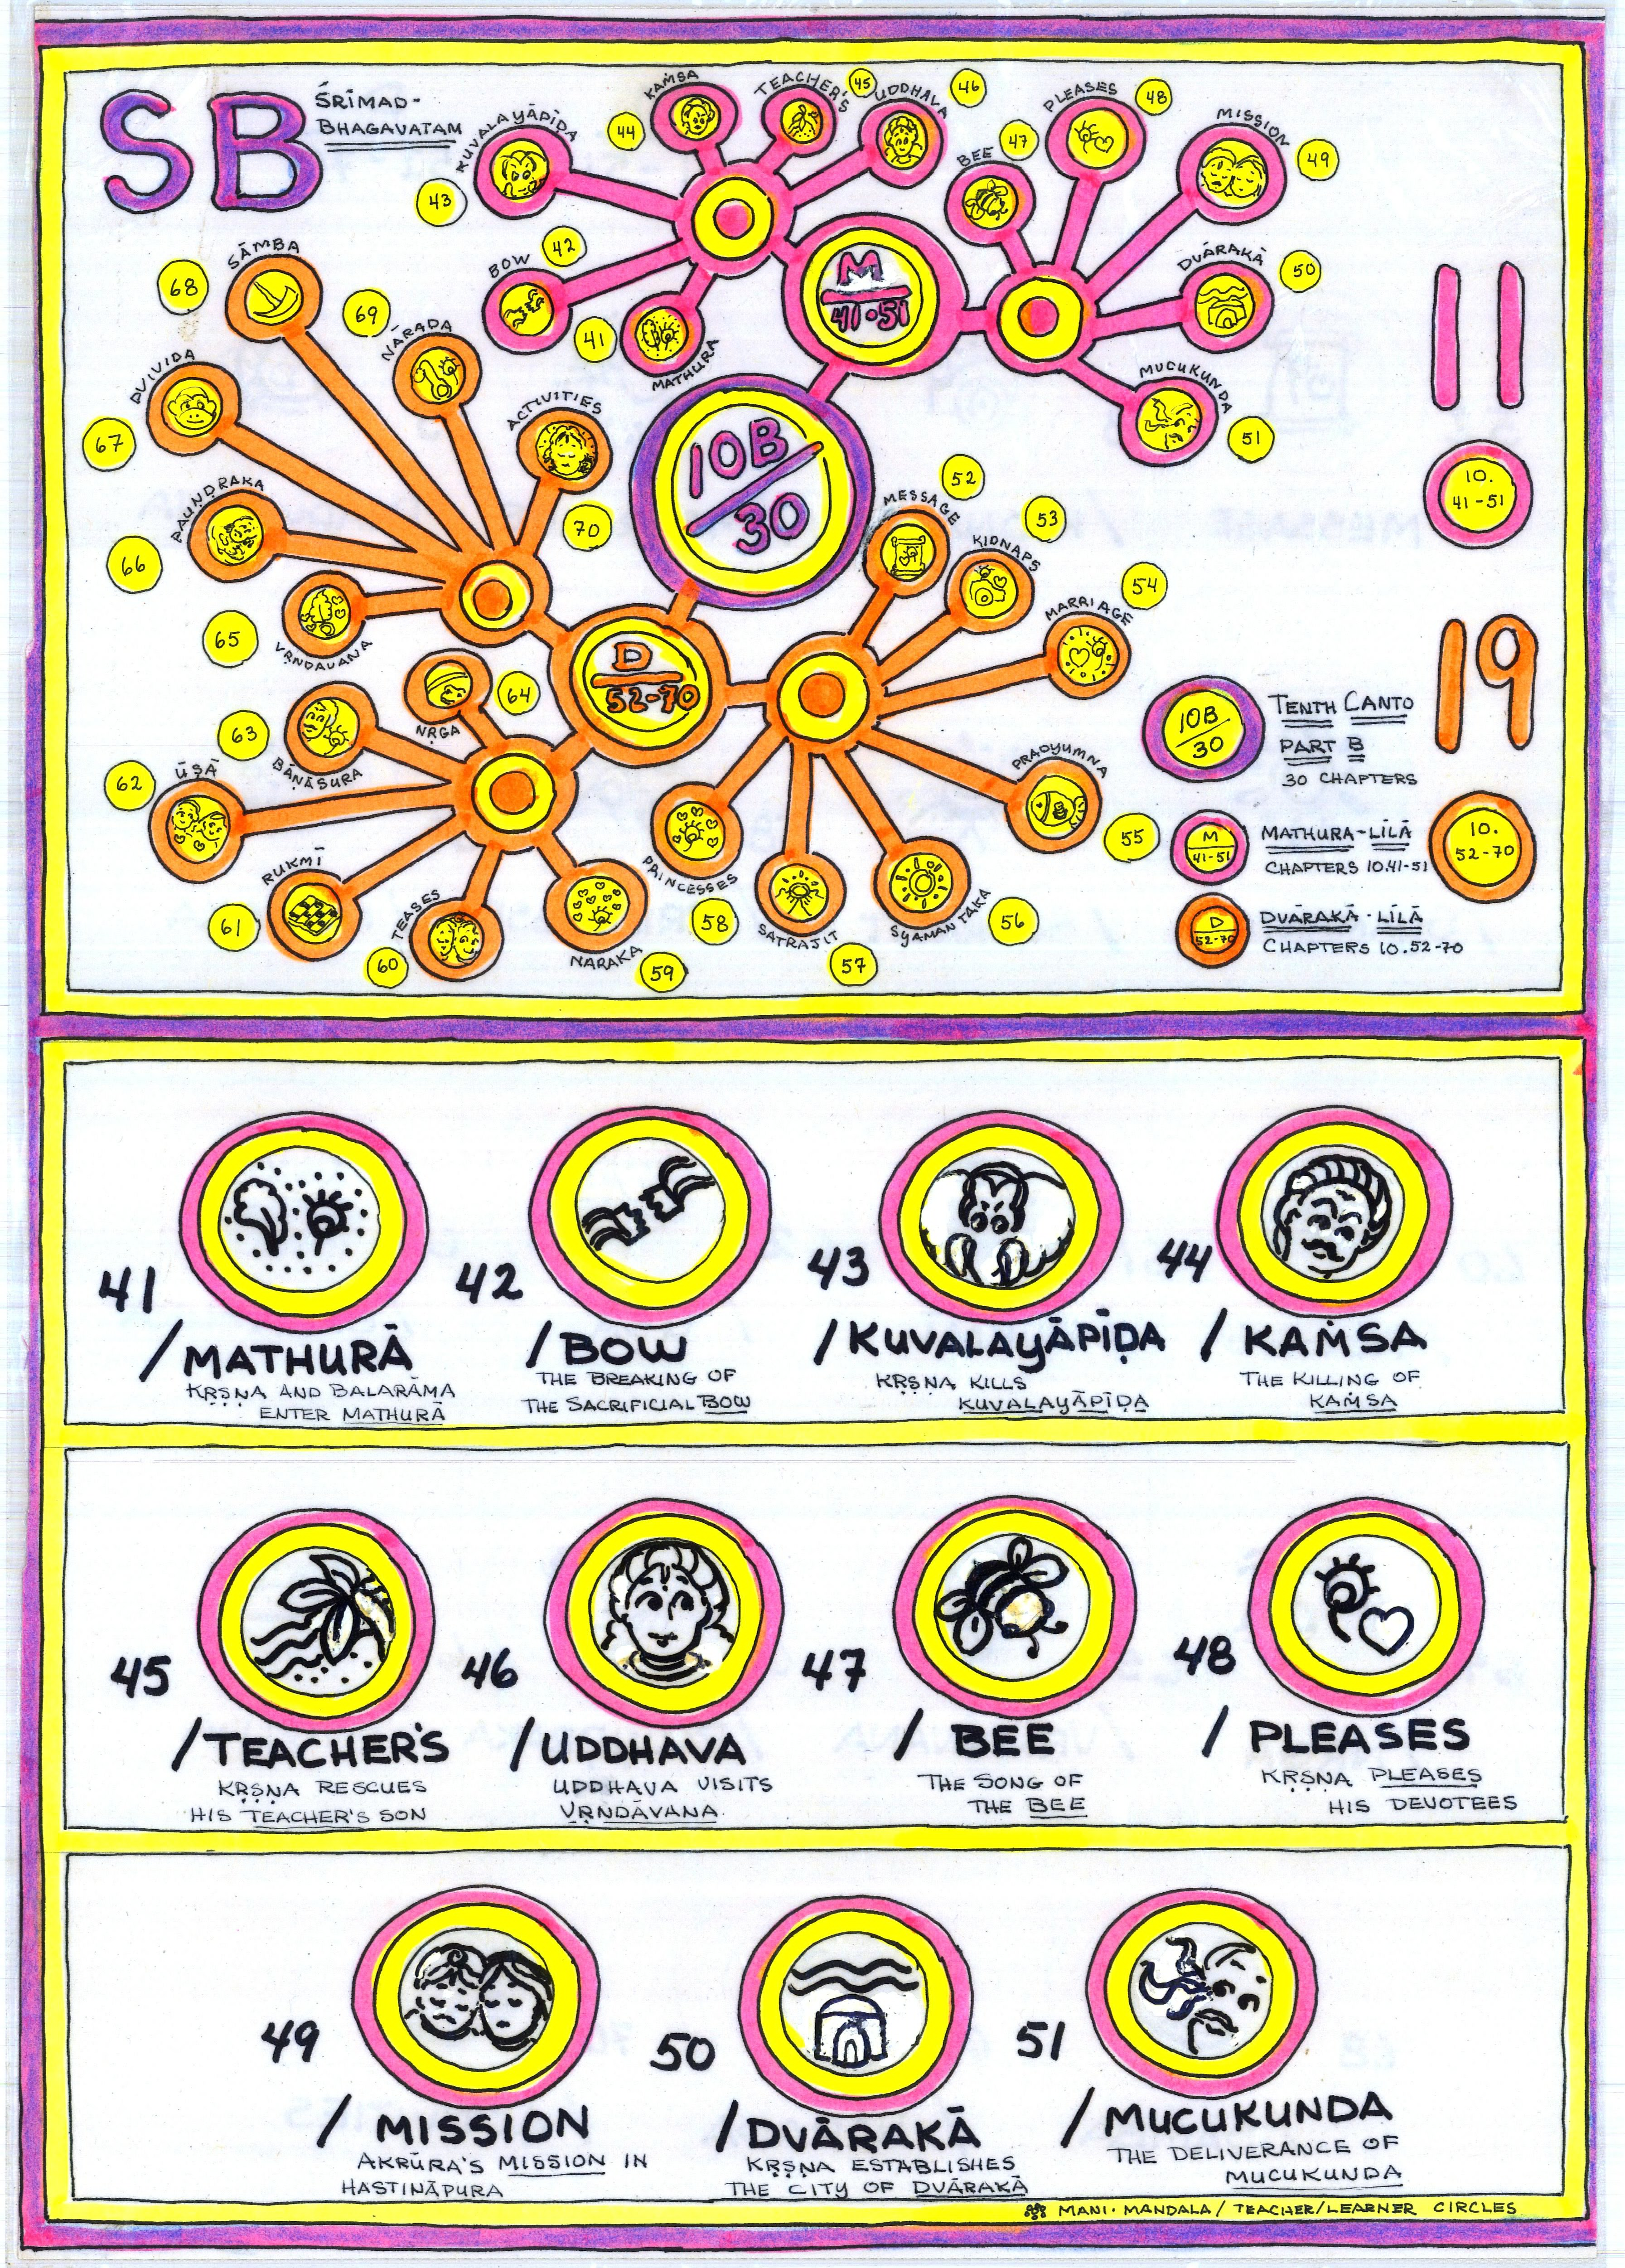 SB
ŚRĪMAD-
BHAGAVATAM
KUVALAYĀPĪḌA
43
KAṀSA
44
TEACHER'S
45
UDDHAVA
46
BEE
47
PLEASES
48
MISSION
49
DVĀRAKĀ
50
MUCUKUNDA
51
BOW
42
41
MATHURA
M
41•51
11
10.
41-51
10B/30
SĀMBA
68
NĀRADA
69
DVIVIDA
67
ACTIVITIES
70
PAUṆḌRAKA
66
VṚNDAVANA
65
NṚGA
64
BĀṆĀSURA
63
ŪṢĀ
62
RUKMĪ
61
TEASES
60
NARAKA
59
D
52-70
MESSAGE
52
KIDNAPS
53
MARRIAGE
54
PRADYUMNA
55
SYAMANTAKA
56
SATRAJIT
57
PRINCESSES
58
19
10.
52-70
10B/30
TENTH CANTO
PART B
30 CHAPTERS
M
41-51
MATHURA-LĪLĀ
CHAPTERS 10.41-51
D
52-70
DVĀRAKĀ-LĪLĀ
CHAPTERS 10.52-70
41
/MATHURĀ
KṚṢṆA AND BALARĀMA
ENTER MATHURĀ
42
/BOW
THE BREAKING OF
THE SACRIFICIAL BOW
43
/KUVALAYĀPĪḌA
KṚṢṆA KILLS
KUVALAYĀPĪḌA
44
/KAṀSA
THE KILLING OF
KAṀSA
45
/TEACHER'S
KṚṢṆA RESCUES
HIS TEACHER'S SON
46
/UDDHAVA
UDDHAVA VISITS
VṚNDĀVANA.
47
/BEE
THE SONG OF
THE BEE
48
/PLEASES
KṚṢṆA PLEASES
HIS DEVOTEES
49
/MISSION
AKRŪRA'S MISSION IN
HASTINĀPURA
50
/DVĀRAKĀ
KṚṢṆA ESTABLISHES
THE CITY OF DVĀRAKĀ
51
/MUCUKUNDA
THE DELIVERANCE OF
MUCUKUNDA
MANI•MANDALA/TEACHER/LEARNER CIRCLES